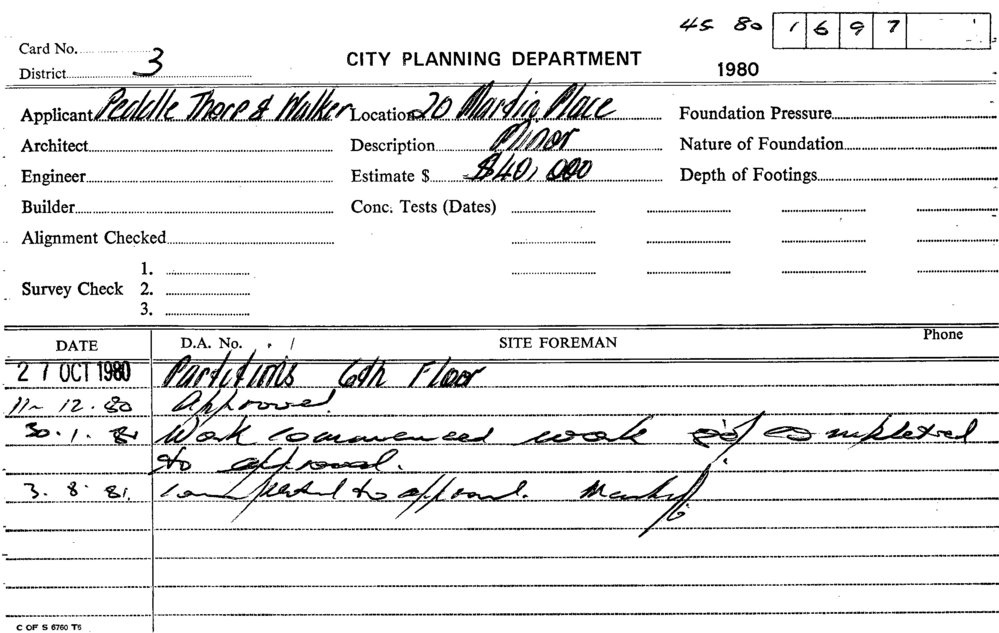 45 80 1697
Card No. 
District 3
CITY PLANNING DEPARTMENT
1980
Applicant Peddle Thorp & Walker Location 20 Martin Place Foundation Pressure
Architect Description Minor Nature of Foundation
Engineer Estimate $ $40,000 Depth of Footings
Builder Conc. Tests (Dates)
Alignment Checked
1.
Survey Check 2.
3.
DATE D.A. No. SITE FOREMAN Phone
27 OCT 1980 Partitions 6th Floor
11-12.80 Approved.
30.1.81 Work commenced work completed
to approval.
3.8.81. Completed to approval.
C OF S 6760 T6